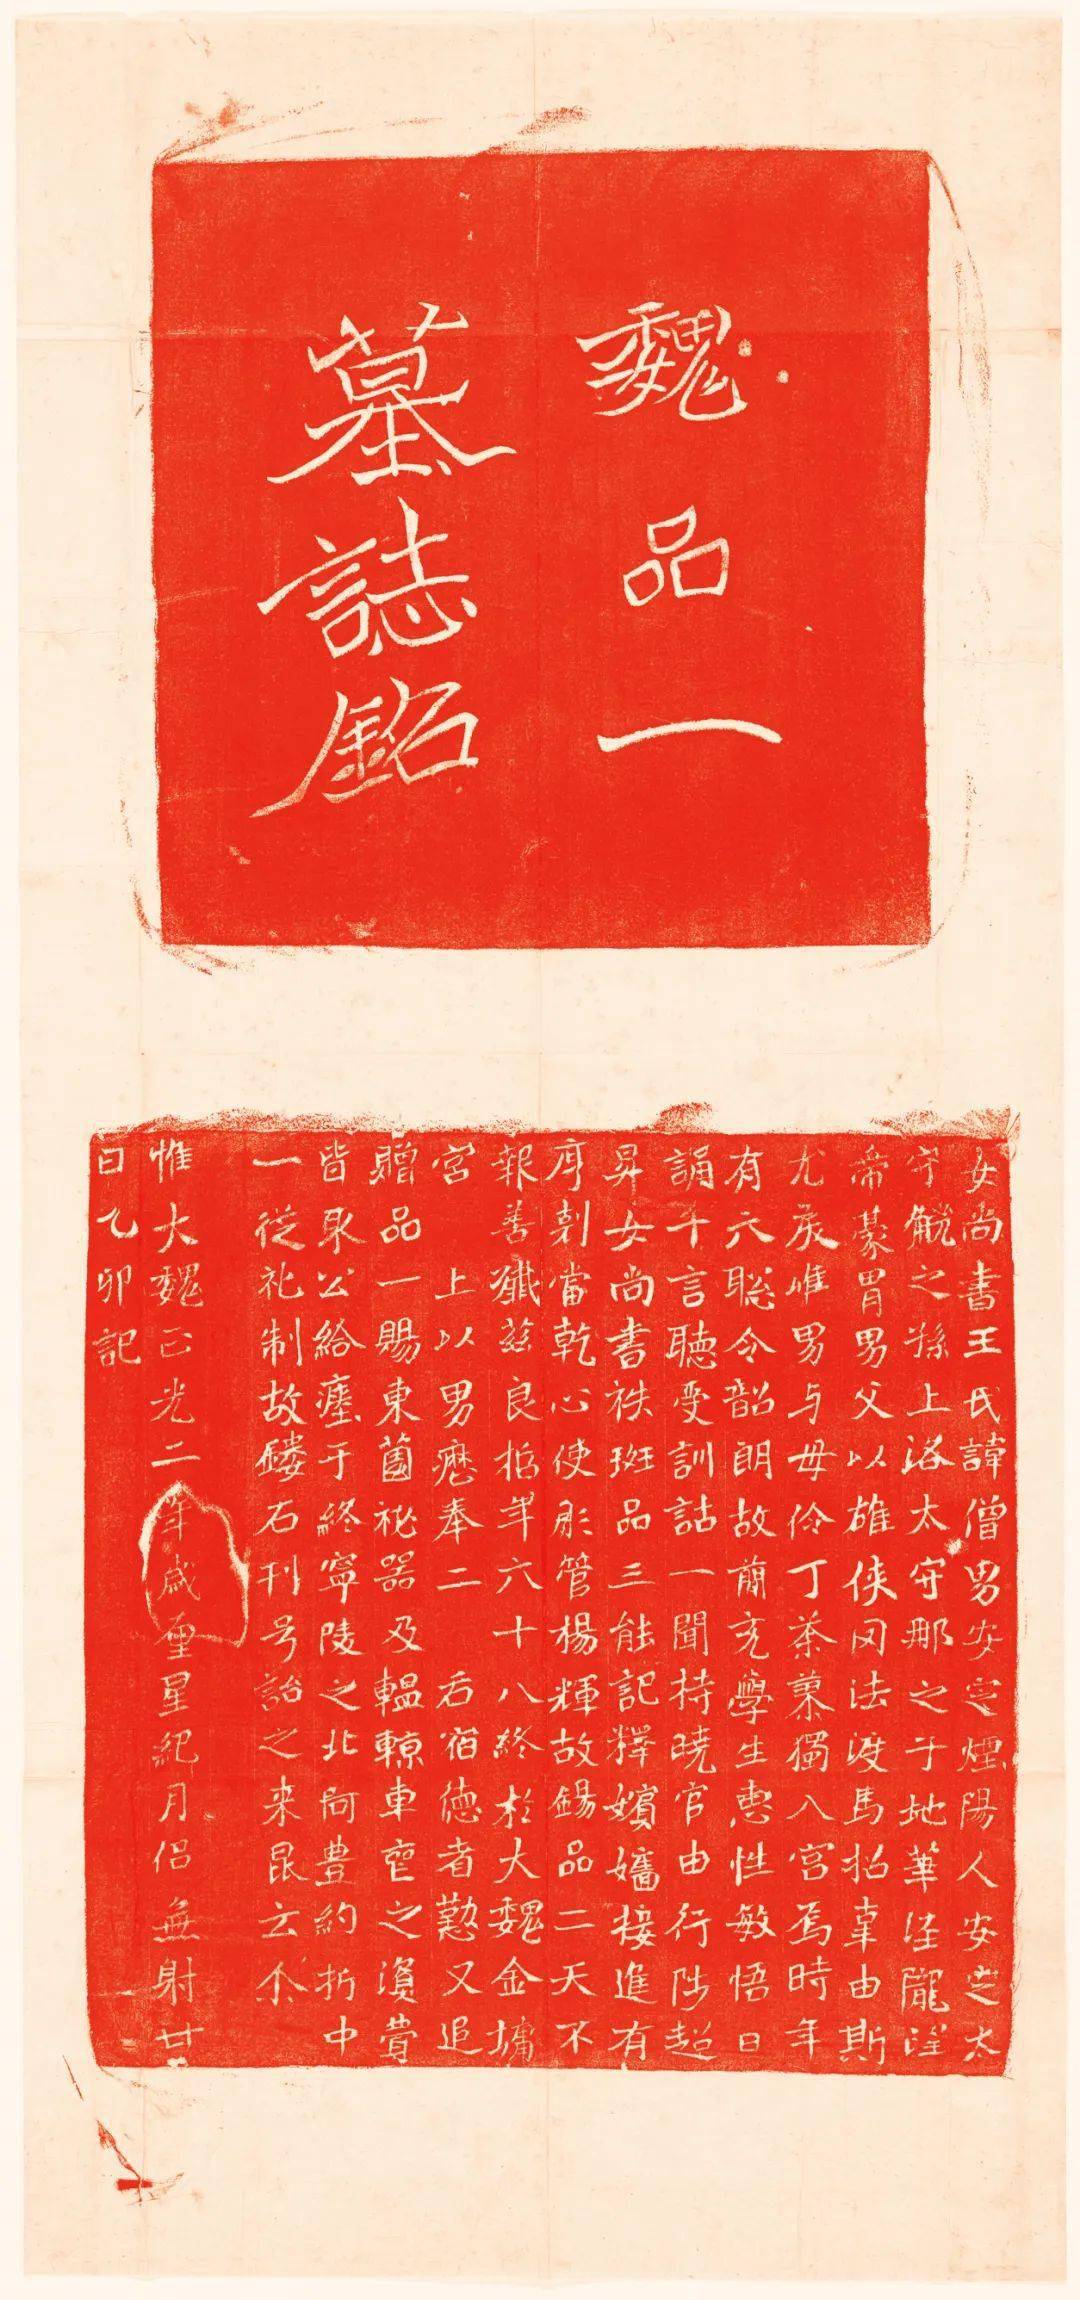 魏品一
墓誌銘
女尚書王氏諱僧男安定煙陽人安定太
守觥之孫上洛太守那之子地華涇隴望
帝豪胄男父以雄俠罔法渡馬招辜由斯
尤戾唯男与母伶丁荼蓼獨入宮焉時年
有六聡令韶朗故蕳充學生惠性敏悟日
誦千言聽受訓詁一聞持曉官由行陟超
昇女尚書秩班品三能記釋嬪嬙接進有
序剋當乾心使彤管楊輝故錫品二天不
報善殲兹良惁年六十八終於大魏金墉
宮 上以男歷奉二 后宿德者懃又追
贈品一賜東薗祕器及轀輬車瘞之濱費
皆取公給塟于終寧陵之北阿豊約折中
一從礼制故鏤石刊号詒之来昆云尒
惟大魏正光二年歲重星紀月侣無射廿
日乙卯記